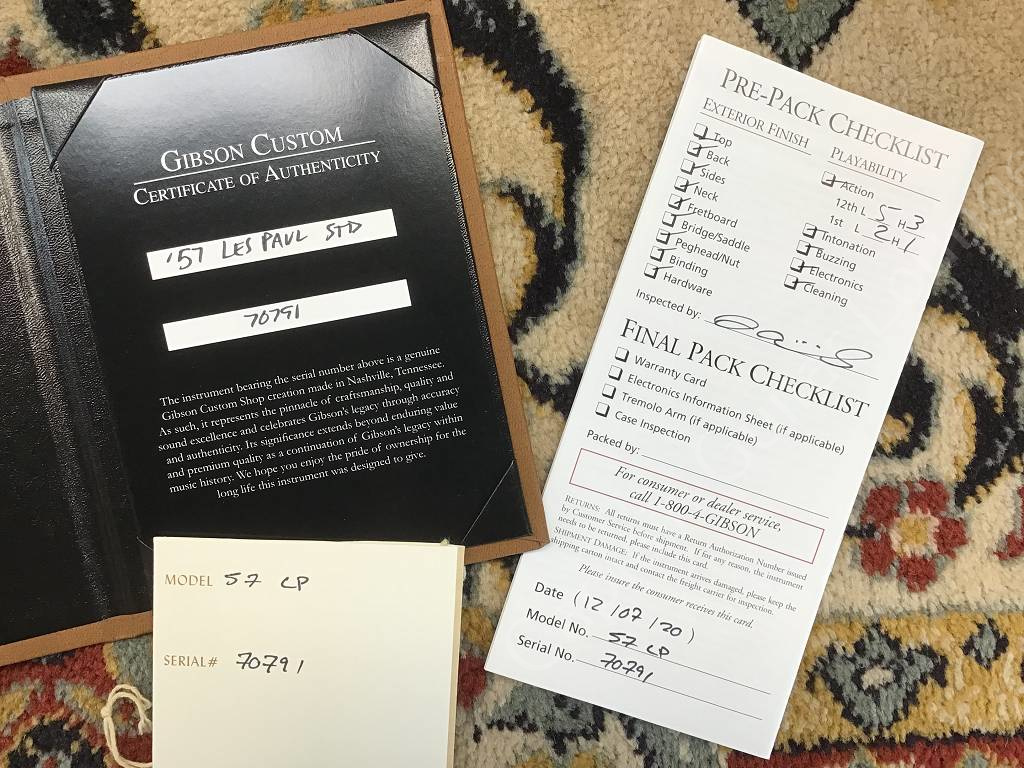 GIBSON CUSTOM
CERTIFICATE OF AUTHENTICITY
'57 LES PAUL STD
70791
The instrument bearing the serial number above is a genuine
Gibson Custom Shop creation made in Nashville, Tennessee.
As such, it represents the pinnacle of craftsmanship, quality and
sound excellence and celebrates Gibson's legacy through accuracy
and authenticity. Its significance extends beyond enduring value
and premium quality as a continuation of Gibson's legacy within
music history. We hope you enjoy the pride of ownership for the
long life this instrument was designed to give.
MODEL 57 LP
SERIAL# 70791
PRE-PACK CHECKLIST
EXTERIOR FINISH
Top
Back
Sides
Neck
Fretboard
Bridge/Saddle
Peghead/Nut
Binding
Hardware
PLAYABILITY
Action
12th L 5 H 3
1st L 2 H 1
Intonation
Buzzing
Electronics
Cleaning
Inspected by:
FINAL PACK CHECKLIST
Warranty Card
Electronics Information Sheet (if applicable)
Tremolo Arm (if applicable)
Case Inspection
Packed by:
For consumer or dealer service,
call 1-800-4-GIBSON
RETURNS: All returns must have a Return Authorization Number issued
by Customer Service before shipment. If for any reason, the instrument
needs to be returned, please include this card.
SHIPMENT DAMAGE: If the instrument arrives damaged, please keep the
shipping carton intact and contact the freight carrier for inspection.
Please insure the consumer receives this card.
Date (12/07/20)
Model No. 57 LP
Serial No. 70791